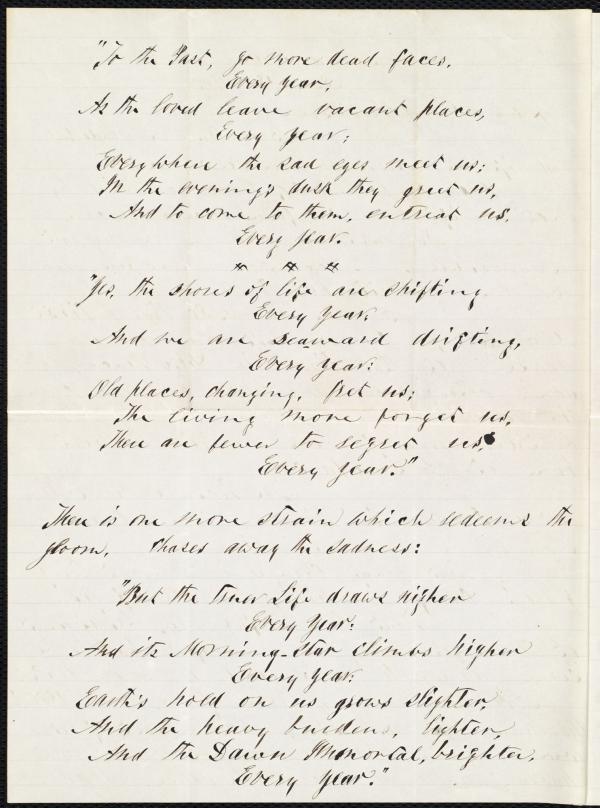 "To the Past, go more dead faces,
Every year,
As the loved leave vacant places,
Every year;
Everywhere the sad eyes meet us;
In the evening's dusk they greet us,
And to come to them, entreat us,
Every year.
"Yes, the shores of life are shifting
Every year;
And we are seaward drifting,
Every year:
Old places, changing, fret us;
The living more forget us,
There are fewer to regret us,
Every year."
There is one more strain which redeems the
gloom, chases away the sadness:
"But the truer Life draws nigher
Every year:
And its Morning-star climbs higher
Every year:
Earth's hold on us grows slighter,
And the heavy burdens, lighter,
And the Dawn Immortal, brighter,
Every year."